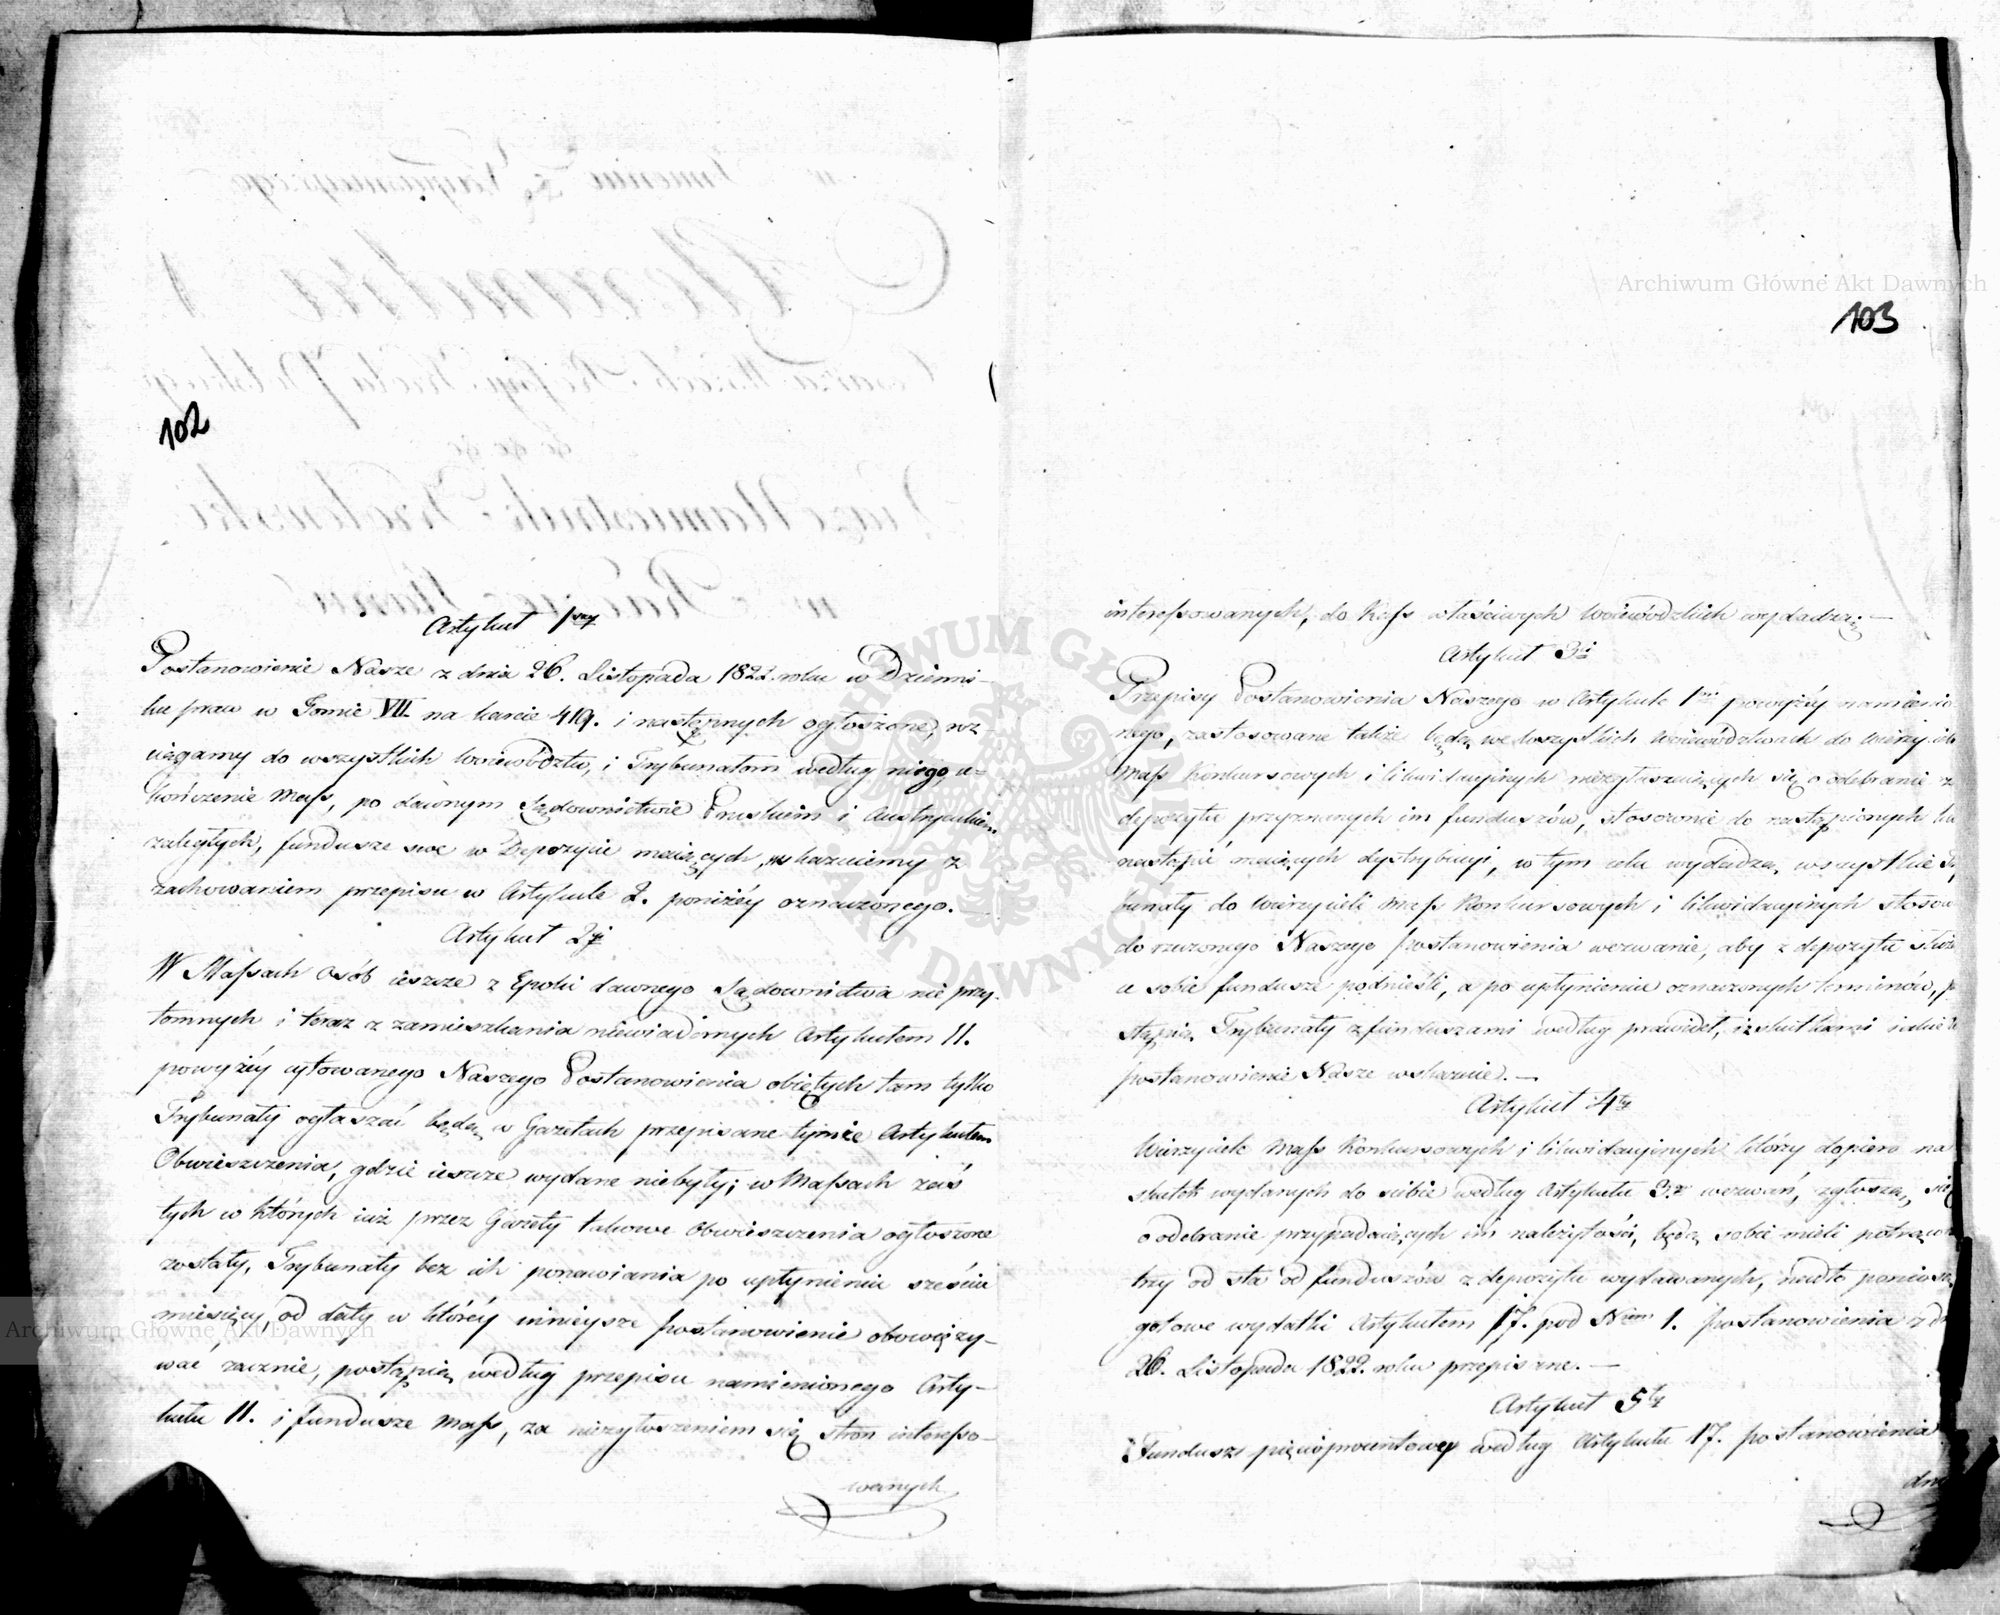 102
Artykuł 1wszy
Postanowienie Nasze z dnia 26. Listopada 1822. roku w Dzienni-
ku praw w Tomie VII. na karcie 419. i następnych ogłoszone, roz-
ciągamy do wszystkich Woiewództw, i Trybunałom według niego u=
kończenie Mass, po dawnym Sądownictwie Pruskiem i Austryackiem
zaległych, fundusze swe w Depozycie maiących, wskazuiemy z
zachowaniem przepisu w Artykule 2. poniżéy oznaczonego.
Artykuł 2gi
W Massach Osób ieszcze z Epoki dawnego Sądownictwa nie przy-
tomnych i teraz z zamieszkania niewiadomych Artykułem 11.
powyżéy cytowanego Naszego Postanowienia obiętych tam tylko
Trybunały ogłaszać będą w Gazetach przepisane tymże Artykułem
Obwieszczenia, gdzie ieszcze wydane niebyły; w Massach zaś
tych w których iuż przez Gazety takowe Obwieszczenia ogłoszone
zostały, Trybunały bez ich ponawiania po upłynieniu sześciu
miesięcy, od daty w któréy ninieysze postanowienie obowięzy-
wać zacznie, postąpią według przepisu namienionego Arty-
kułu 11. i fundusze Mass, za niezgłoszeniem się stron interesso-
wanych
103
interessowanych, do Kass właściwych Woiewódzkich wydadzą.—
Artykuł 3i
Przepisy Postanowienia Naszego w Artykule 1m powyżéy namienio
nego, zastosowane także będą we wszystkich Woiewództwach do Wierzycieli
Mass Konkursowych i likwidacyinych niezgłaszaiących się o odebranie z
depozytu przyznanych im funduszów, stosownie do nastąpionych lub
nastąpić maiących dystrybucyi, w tym celu wydadzą wszystkie Try
bunały do Wierzycieli Mass Konkursowych i likwidacyinych stosow
do rzeczonego Naszego postanowienia wezwanie, aby z depozytu służą
ce sobie fundusze podnieśli, a po upłynieniu oznaczonych terminów, po
stąpią Trybunały z funduszami według prawideł, i z skutkami iakie to
postanowienie Nasze wskazuie.—
Artykuł 4ty
Wierzyciele Mass Konkursowych i likwidacyinych którzy dopiero na
skutek wydanych do siebie według Artykułu 3. wezwań, zgłoszą się
o odebranie przypadaiących im należytości, będą sobie mieli potrącone
trzy od sta od funduszów z depozytu wydawanych, nadto poniosą
gotowe wydatki Artykułem 17. pod Nrem 1. postanowienia z d
26. Listopada 1822. roku przepisane.—
Artykuł 5ty
Fundusz pięcioprocentowy według Artykułu 17. postanowienia
dnia
Archiwum Główne Akt Dawnych
Archiwum Główne Akt Dawnych
ARCHIWUM GŁÓWNE AKT DAWNYCH